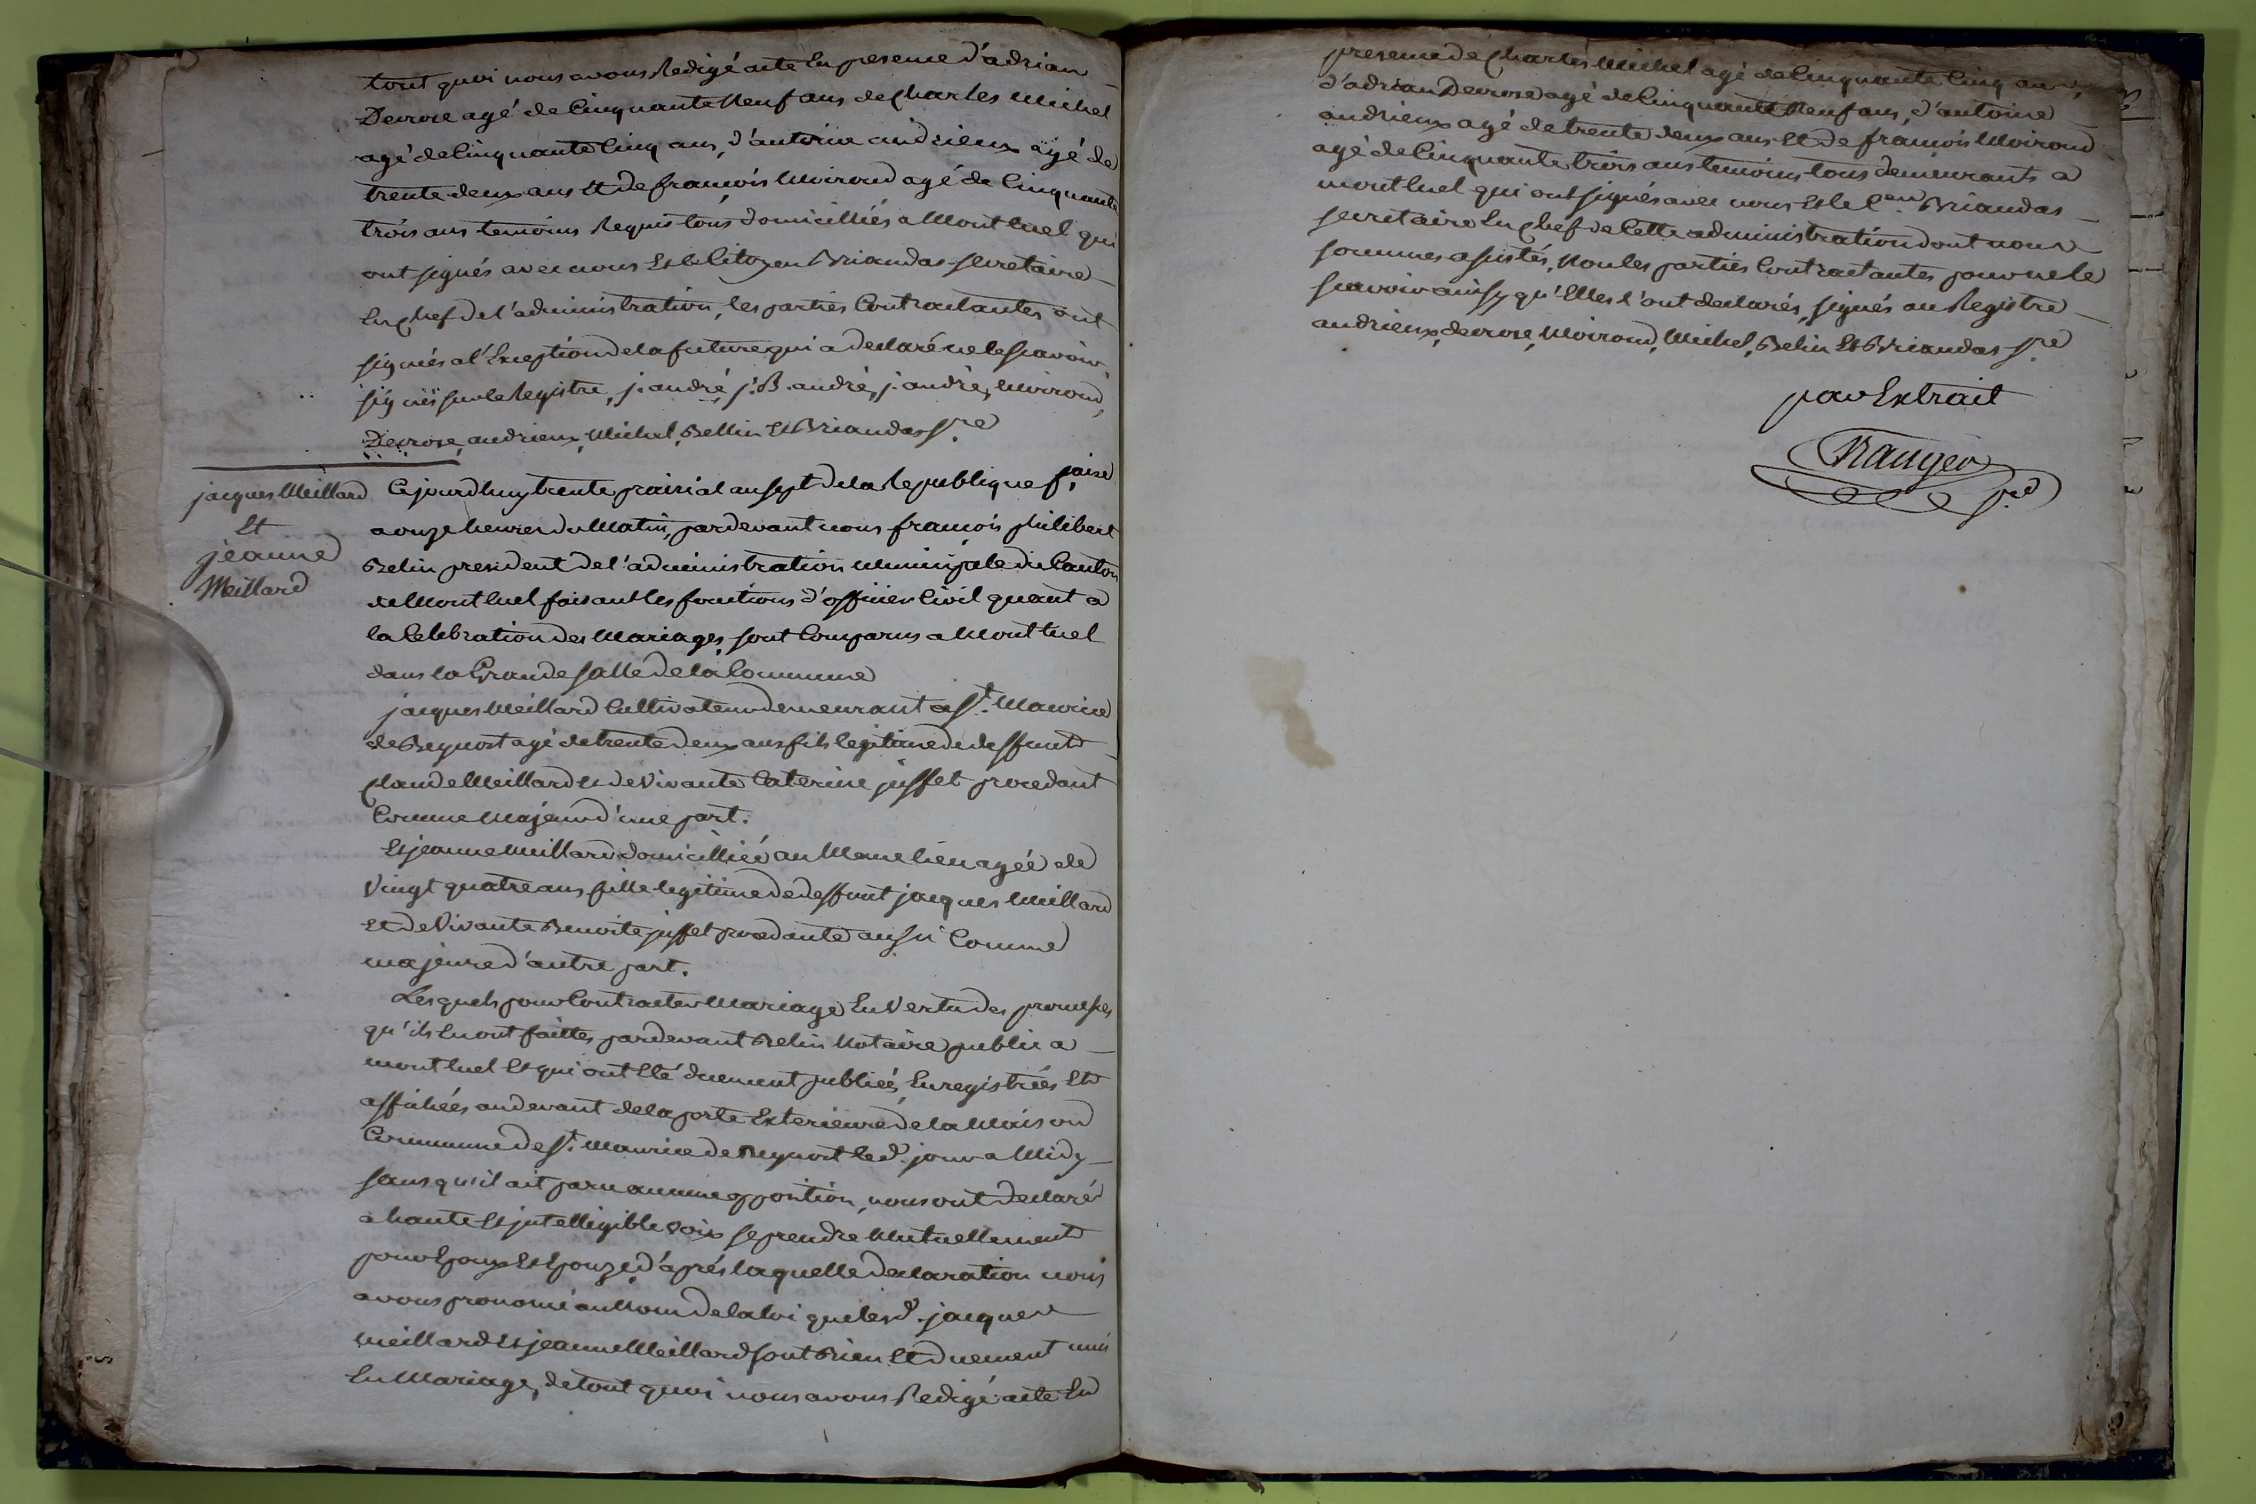 tout quoi nous avons Redigé acte En presence d'adrian
Decrose agé de Cinquante Neuf ans de Charles Michel
agé de Cinquante Cinq ans, d'antoine andrieux agé de
trente deux ans Et de françois Moiroud agé de Cinquante
trois ans temoins Requis tous domicilliés a Montluel qui
ont signés avec nous Et le Citoyen Briandas secretaire
En Chef de l'administration, les parties Contractantes ont
signés a l'Exception de la future qui a declaré ne le sçavoir,
signés sur le Registre, j. andré, j. B. andré, j. andré, Moiroud,
Decrose, andrieux, Michel, Bellin Et Briandas sre
jacques Meillard
Et
jeanne
Meillard
Cejourdhuy trente prairial an sept de la Republique f.aise
a onze heures du Matin, pardevant nous françois philibert
Belin president de l'administration Municipale du Canton
de Montluel faisant les fonctions d'officier Civil quant a
la Celebration des Mariages, sont Comparus a Montluel
dans la Grande salle de la Commune
jacques Meillard Cultivateur demeurant a St. Maurice
de Beynost agé de trente deux ans fils legitime de deffunt
Claude Meillard Et de Vivante Caterine juffet procedant
Comme Majeur d'une part.
Et jeanne Meillard domicilliée au Meme lieu agée de
Vingt quatre ans fille legitime de deffunt jacques Meillard
Et de Vivante Benoite juffet procedante aussi Comme
majeure d'autre part.
Lesquels pour Contracter Mariage En Vertu des promesses
qu'ils En ont faittes pardevant Belin Notaire public a
montluel Et qui ont Eté duement publiées, Enregistrées Et
affichées au devant de la porte Exterieure de la Maison
Commune de St. Maurice de Beynost led. jour a Midy
sans qu'il ait paru aucune opposition, nous ont declaré
a haute Et jntelligible voix se prendre Mutuellement
pour Epoux Et Epouze, d'après laquelle declaration nous
avons prononcé au Nom de la Loi que lesd. jacques
Meillard Et jeanne Meillard sont Bien Et duement unis
En Mariage, de tout quoi nous avons Redigé acte En
presence de Charles Michel agé de Cinquante Cinq ans,
d'adrian Decrose agé de Cinquante Neuf ans, d'antoine
andrieux agé de trente deux ans Et de françois Moiroud
agé de Cinquante trois ans temoins tous demeurants a
montluel qui ont signés avec nous Et le Cen Briandas
secretaire En Chef de Cette administration dont nous
sommes assistés, Non les parties Contractantes pour ne le
sçavoir ainsy qu'Elles l'ont declarés, signés au Registre
andrieux, decrose, Moiroud, Michel, Belin Et Briandas sre
pour Extrait